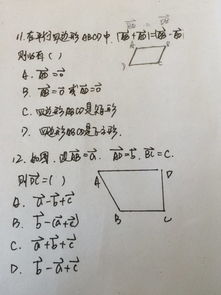 11. 在平行四边形ABCD中, |AB+AD|=|AB-AD|
则必有( )
A. AD=0
B. AB=0或AD=0
C. 四边形ABCD是矩形
D. 四边形ABCD是正方形.
12. 如图, 设AB=a, AD=b, BC=c.
则DC=( )
A. a-b+c
B. b-(a+c)
C. a+b+c
D. b-a+c
A
D
B
C